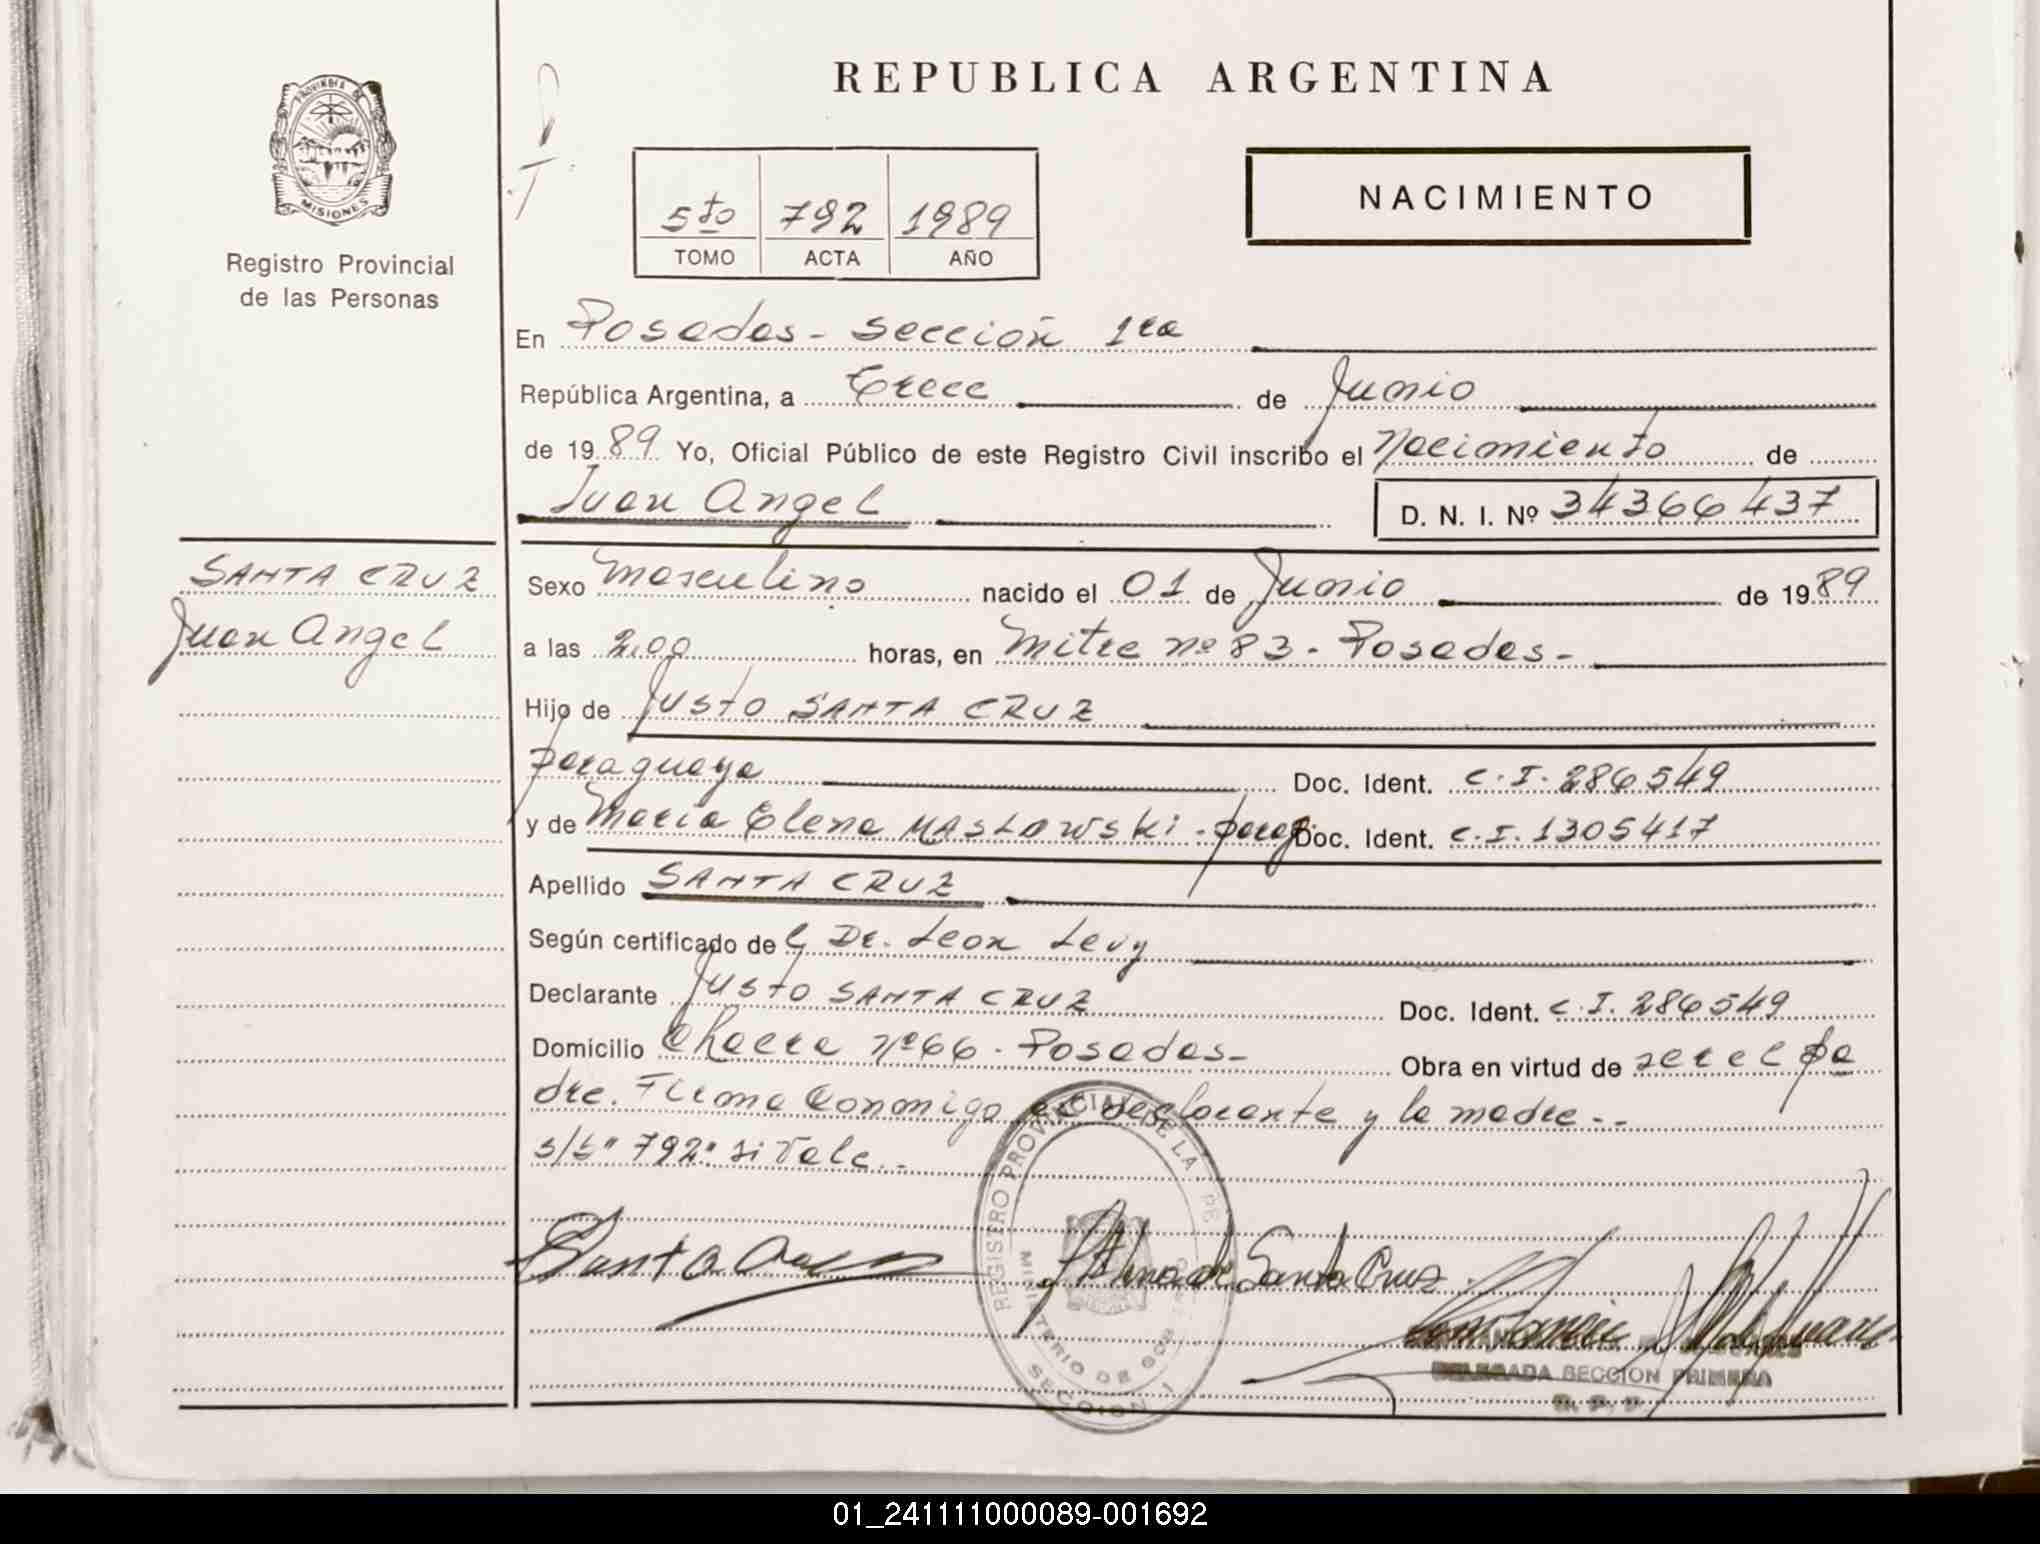 PROVINCIA DE
MISIONES
Registro Provincial
de las Personas
REPUBLICA ARGENTINA
NACIMIENTO
5to 792 1989
TOMO ACTA AÑO
En Posadas - sección 1ra
República Argentina, a trece de Junio
de 1989 Yo, Oficial Público de este Registro Civil inscribo el Nacimiento de
Juan Angel D. N. I. Nº 34366437
SANTA CRUZ
Juan Angel
Sexo masculino nacido el 01 de Junio de 1989
a las 2.00 horas, en Mitre nº 83 - Posadas -
Hijo de Justo SANTA CRUZ
paraguaya Doc. Ident. C. I. 286549
y de María Elena MASLOWSKI - parag. Doc. Ident. C. I. 1305417
Apellido SANTA CRUZ
Según certificado del Dr. Leon Levy
Declarante Justo SANTA CRUZ Doc. Ident. C. I. 286549
Domicilio Chacra nº 66 - Posadas - Obra en virtud de ser el pa
dre. Firma conmigo el declarante y la madre - -
s/b" 792" si Vale. -
Santa Cruz de Santa Cruz
REGISTRO PROVINCIAL DE LA
MINISTERIO DE GOB
SECCION 1
DELEGADA SECCION PRIMERA
R. P. P.
01_241111000089-001692